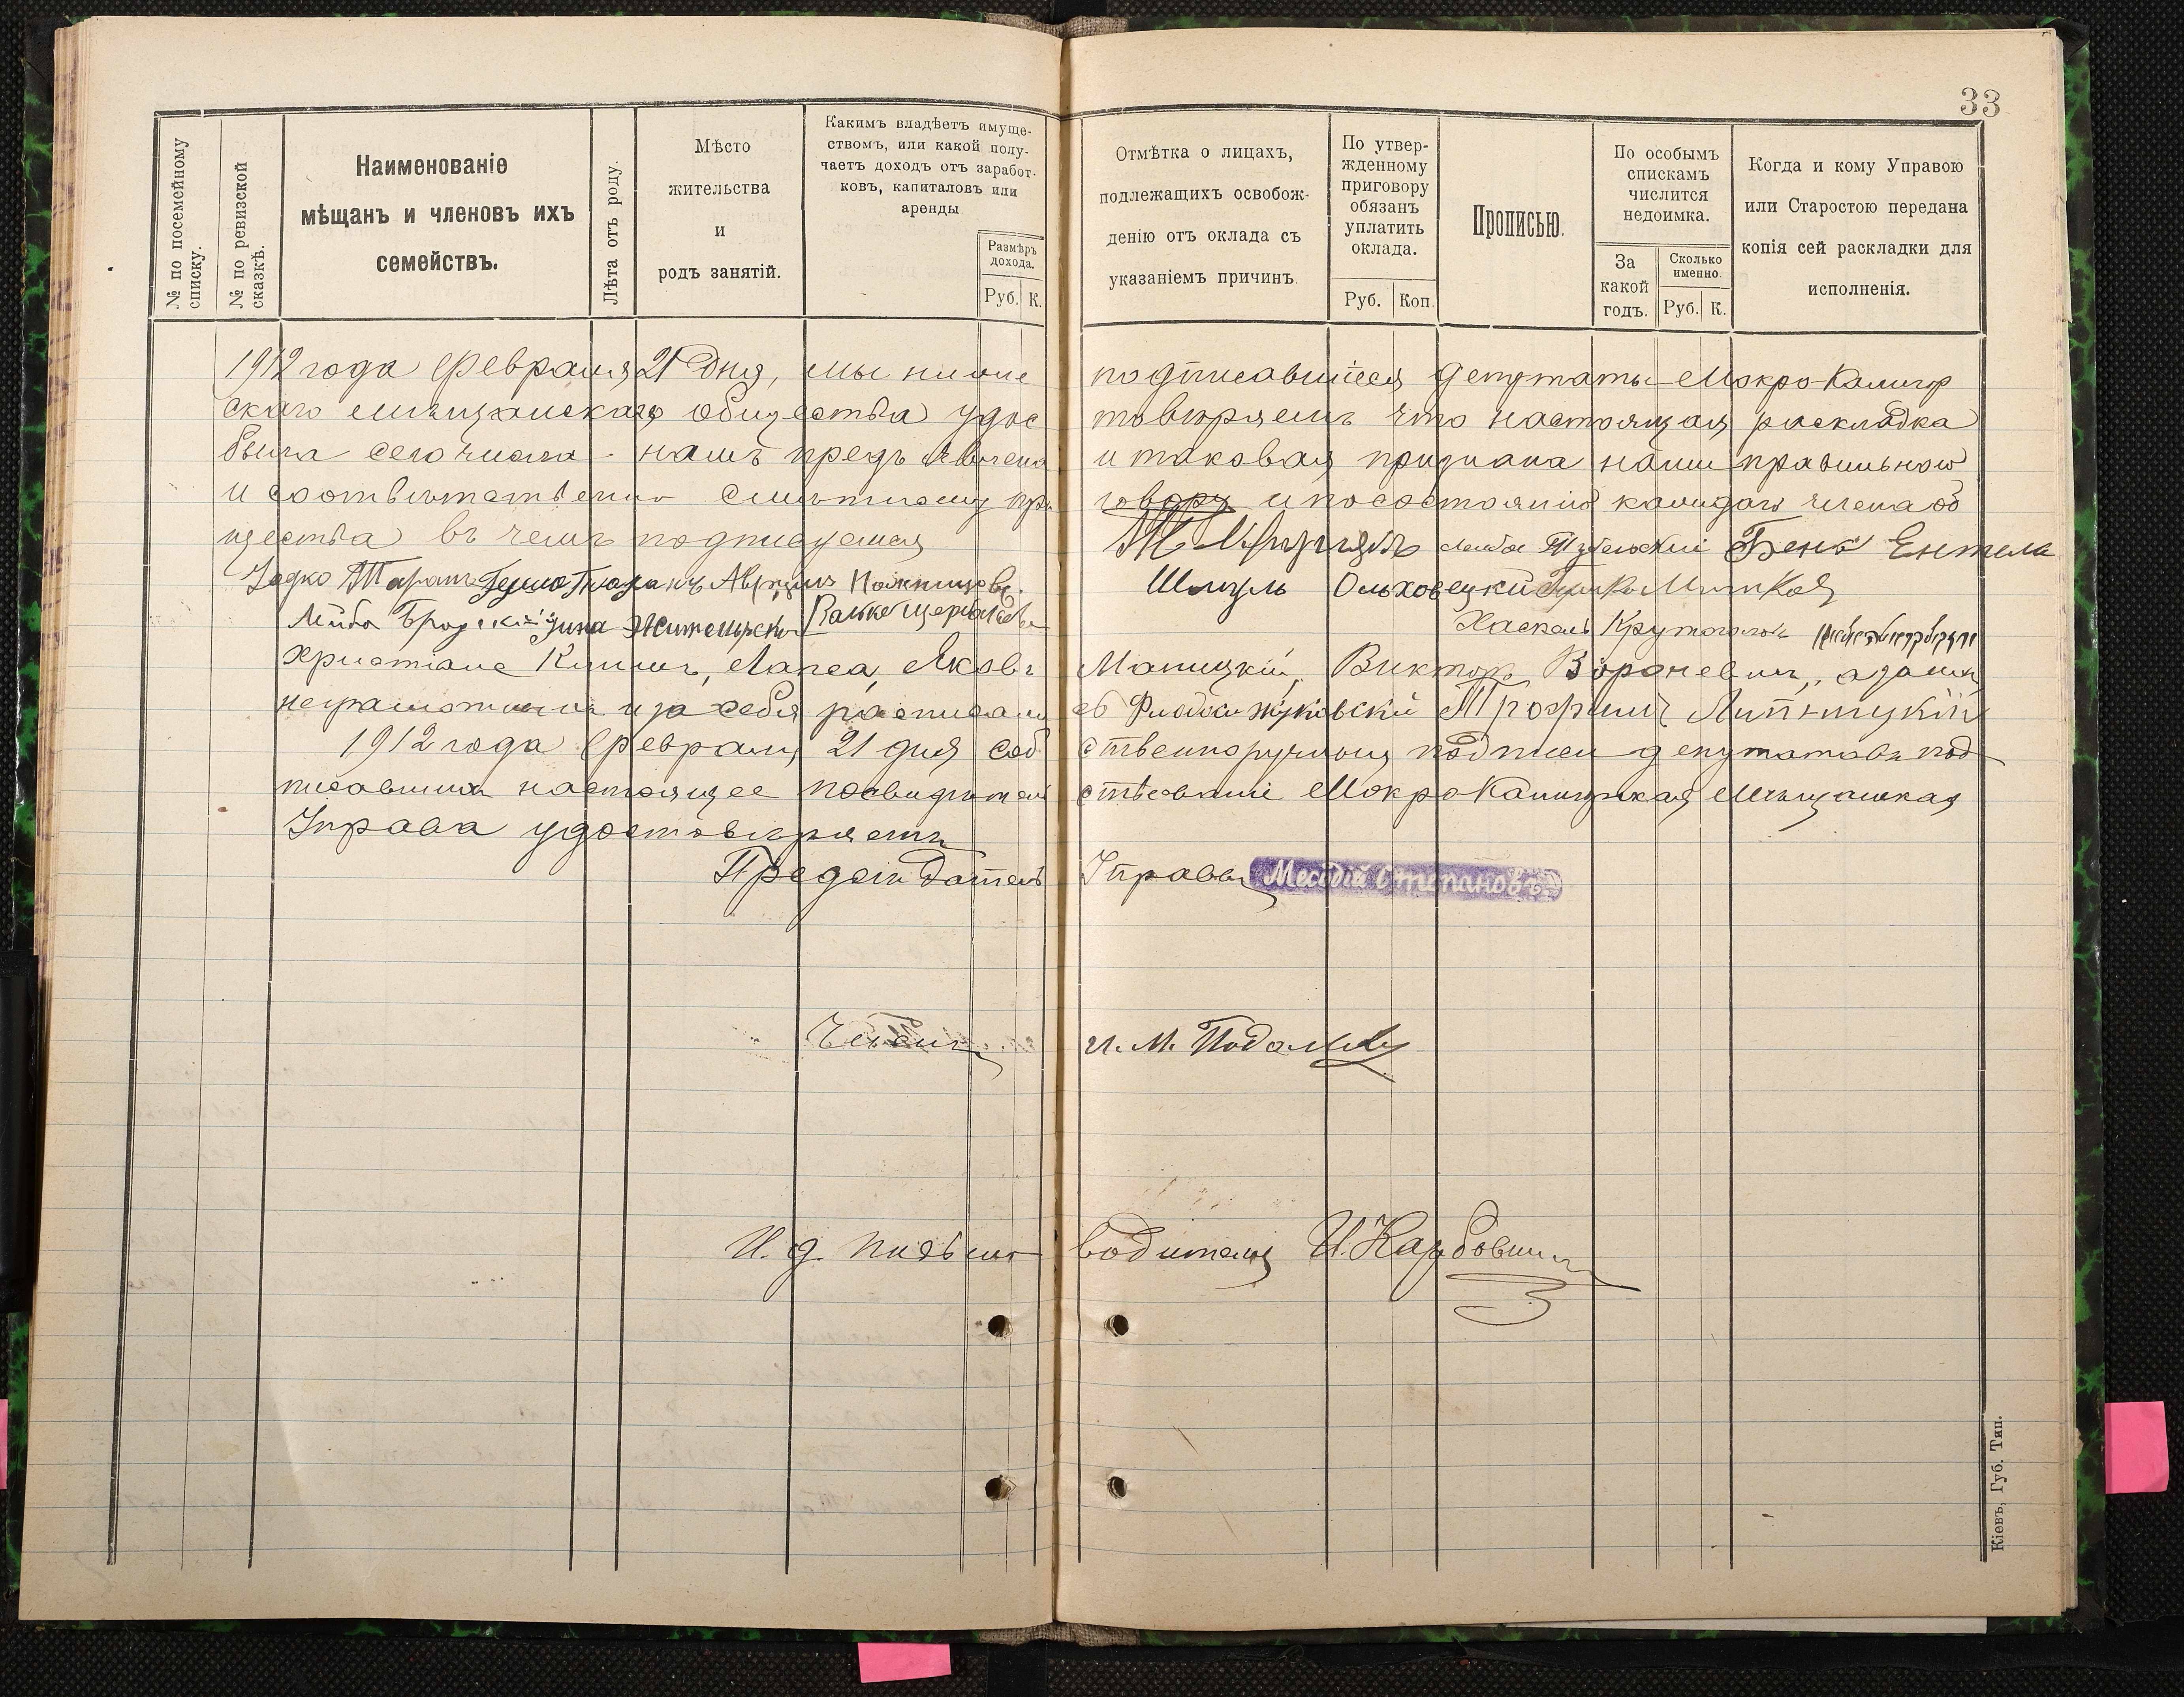 33
№ по посемейному списку.
№ по ревизской сказкѣ.
Наименованіе
мѣщанъ и членовъ ихъ
семействъ.
Лѣта отъ роду.
Мѣсто
жительства
и
родъ занятій.
Какимъ владѣетъ имуще-
ствомъ, или какой полу-
чаетъ доходъ отъ заработ-
ковъ, капиталовъ или
аренды
Размѣръ
дохода.
Руб. К.
Отмѣтка о лицахъ,
подлежащихъ освобож-
денію отъ оклада съ
указаніемъ причинъ.
По утвер-
жденному
приговору
обязанъ
уплатить
оклада.
Руб. Коп.
Прописью.
По особымъ
спискамъ
числится
недоимка.
За
какой
годъ.
Сколько
именно.
Руб. К.
Когда и кому Управою
или Старостою передана
копія сей раскладки для
исполненія.
1912 года февраля 21 дня, мы ниже подписавшіеся депутаты Мокро-Калигор
скаго мѣщанскаго общества удос товѣряемъ что настоящая раскладка
была сего числа намъ предъявлена и таковая признана нами правильною
и соотвѣтственно смѣтному при говору и по состоянію каждаго члена об
щества въ чемъ подписуемся Лейба Тубельскій Бень Ентела
Задко Таранъ Шмуль Ольховецкій
Лейба Бродскій Зина Хаскель Крутоголовъ
христіане Климъ, Лапса, Яковъ Маницкій, Виктор Ворочевичъ, а за
неграмотныхъ и за себя расписались Жуковскій Трофимъ Липницкій
1912 года февраля 21 дня соб ственноручныя подписи депутатовъ под
писавшихъ настоящее посвидѣтель ствованіе Мокро-Калигорская Мѣщанская
Управа удостовѣряетъ
Предсѣдатель Управы Мефодій Степановъ
Членъ И. М.
И. д. письмо водителя И. Карбовничъ
Кіевъ, Губ. Тип.